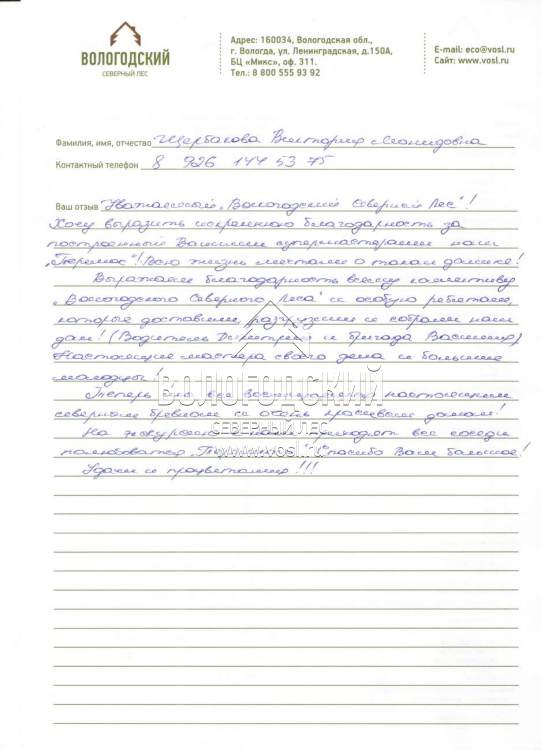 ВОЛОГОДСКИЙ
СЕВЕРНЫЙ ЛЕС
Адрес: 160034, Вологодская обл.,
г. Вологда, ул. Ленинградская, д.150А,
БЦ «Микс», оф. 311.
Тел.: 8 800 555 93 92
E-mail: eco@vosl.ru
Сайт: www.vosl.ru
Фамилия, имя, отчество Щербакова Виктория Леонидовна
Контактный телефон 8 926 144 53 75
Ваш отзыв Уважаемый „Вологодский Северный Лес"!
Хочу выразить искреннюю благодарность за
построенный Вашими супермастерами наш
„Теремок"! Всю жизнь мечтали о таком домике!
Выражаем благодарность всему коллективу
„Вологодского Северного Леса" и особую ребятам,
которые доставили, разгрузили и собрали наш
дом! (Водитель Дмитрий и бригада Василия)
Настоящие мастера своего дела и большие
молодцы!
Теперь мы все восторгаемся настоящим
северным бревном и очень красивым домом!
На экскурсию к нам приходят все соседи
полюбоваться „Теремком". Спасибо Вам большое!
Удачи и процветания!!!
ВОЛОГОДСКИЙ
СЕВЕРНЫЙ ЛЕС
www.vosl.ru